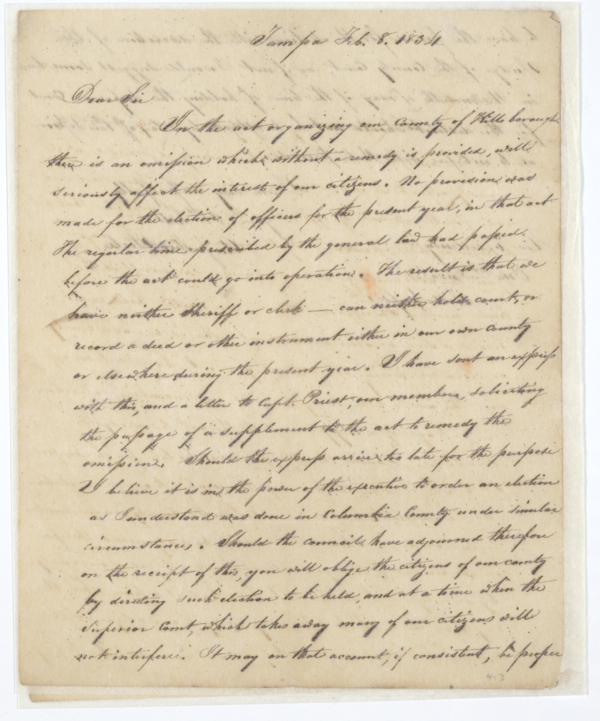 Tampa Feb. 8. 1834
Dear Sir
In the act organizing our County of Hillsborough
there is an omission which, without a remedy is provided, will
seriously affect the interests of our citizens. No provision was
made for the election of officers for the present year, in that act
The regular time prescribed by the general law had passed
before the act could go into operation. The result is that we
have neither Sheriff or clerk — can neither hold courts, or
record a deed or other instrument either in our own County
or elsewhere during the present year. I have sent an express
with this, and a letter to Capt. Priest, our member, soliciting
the passage of a supplement to the act to remedy the
omission. Should the express arrive too late for the purpose
I believe it is in the power of the executive to order an election
as I understand was done in Columbia County under similar
circumstances. Should the council have adjourned therefore
on the receipt of this, you will oblige the citizens of our county
by directing such election to be held, and at a time when the
Superior Court, which takes away many of our citizens will
not interfere. It may on that account, if consistent, be proper